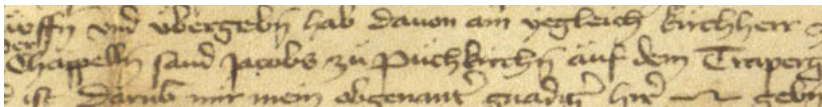 und übergebn hab davon ain yegleich kirchherr
Chappelln sand Jacobs zu Püchkirchn auf dem Traperg
ist darumb mir mein obgenanter gnädiger her gebn